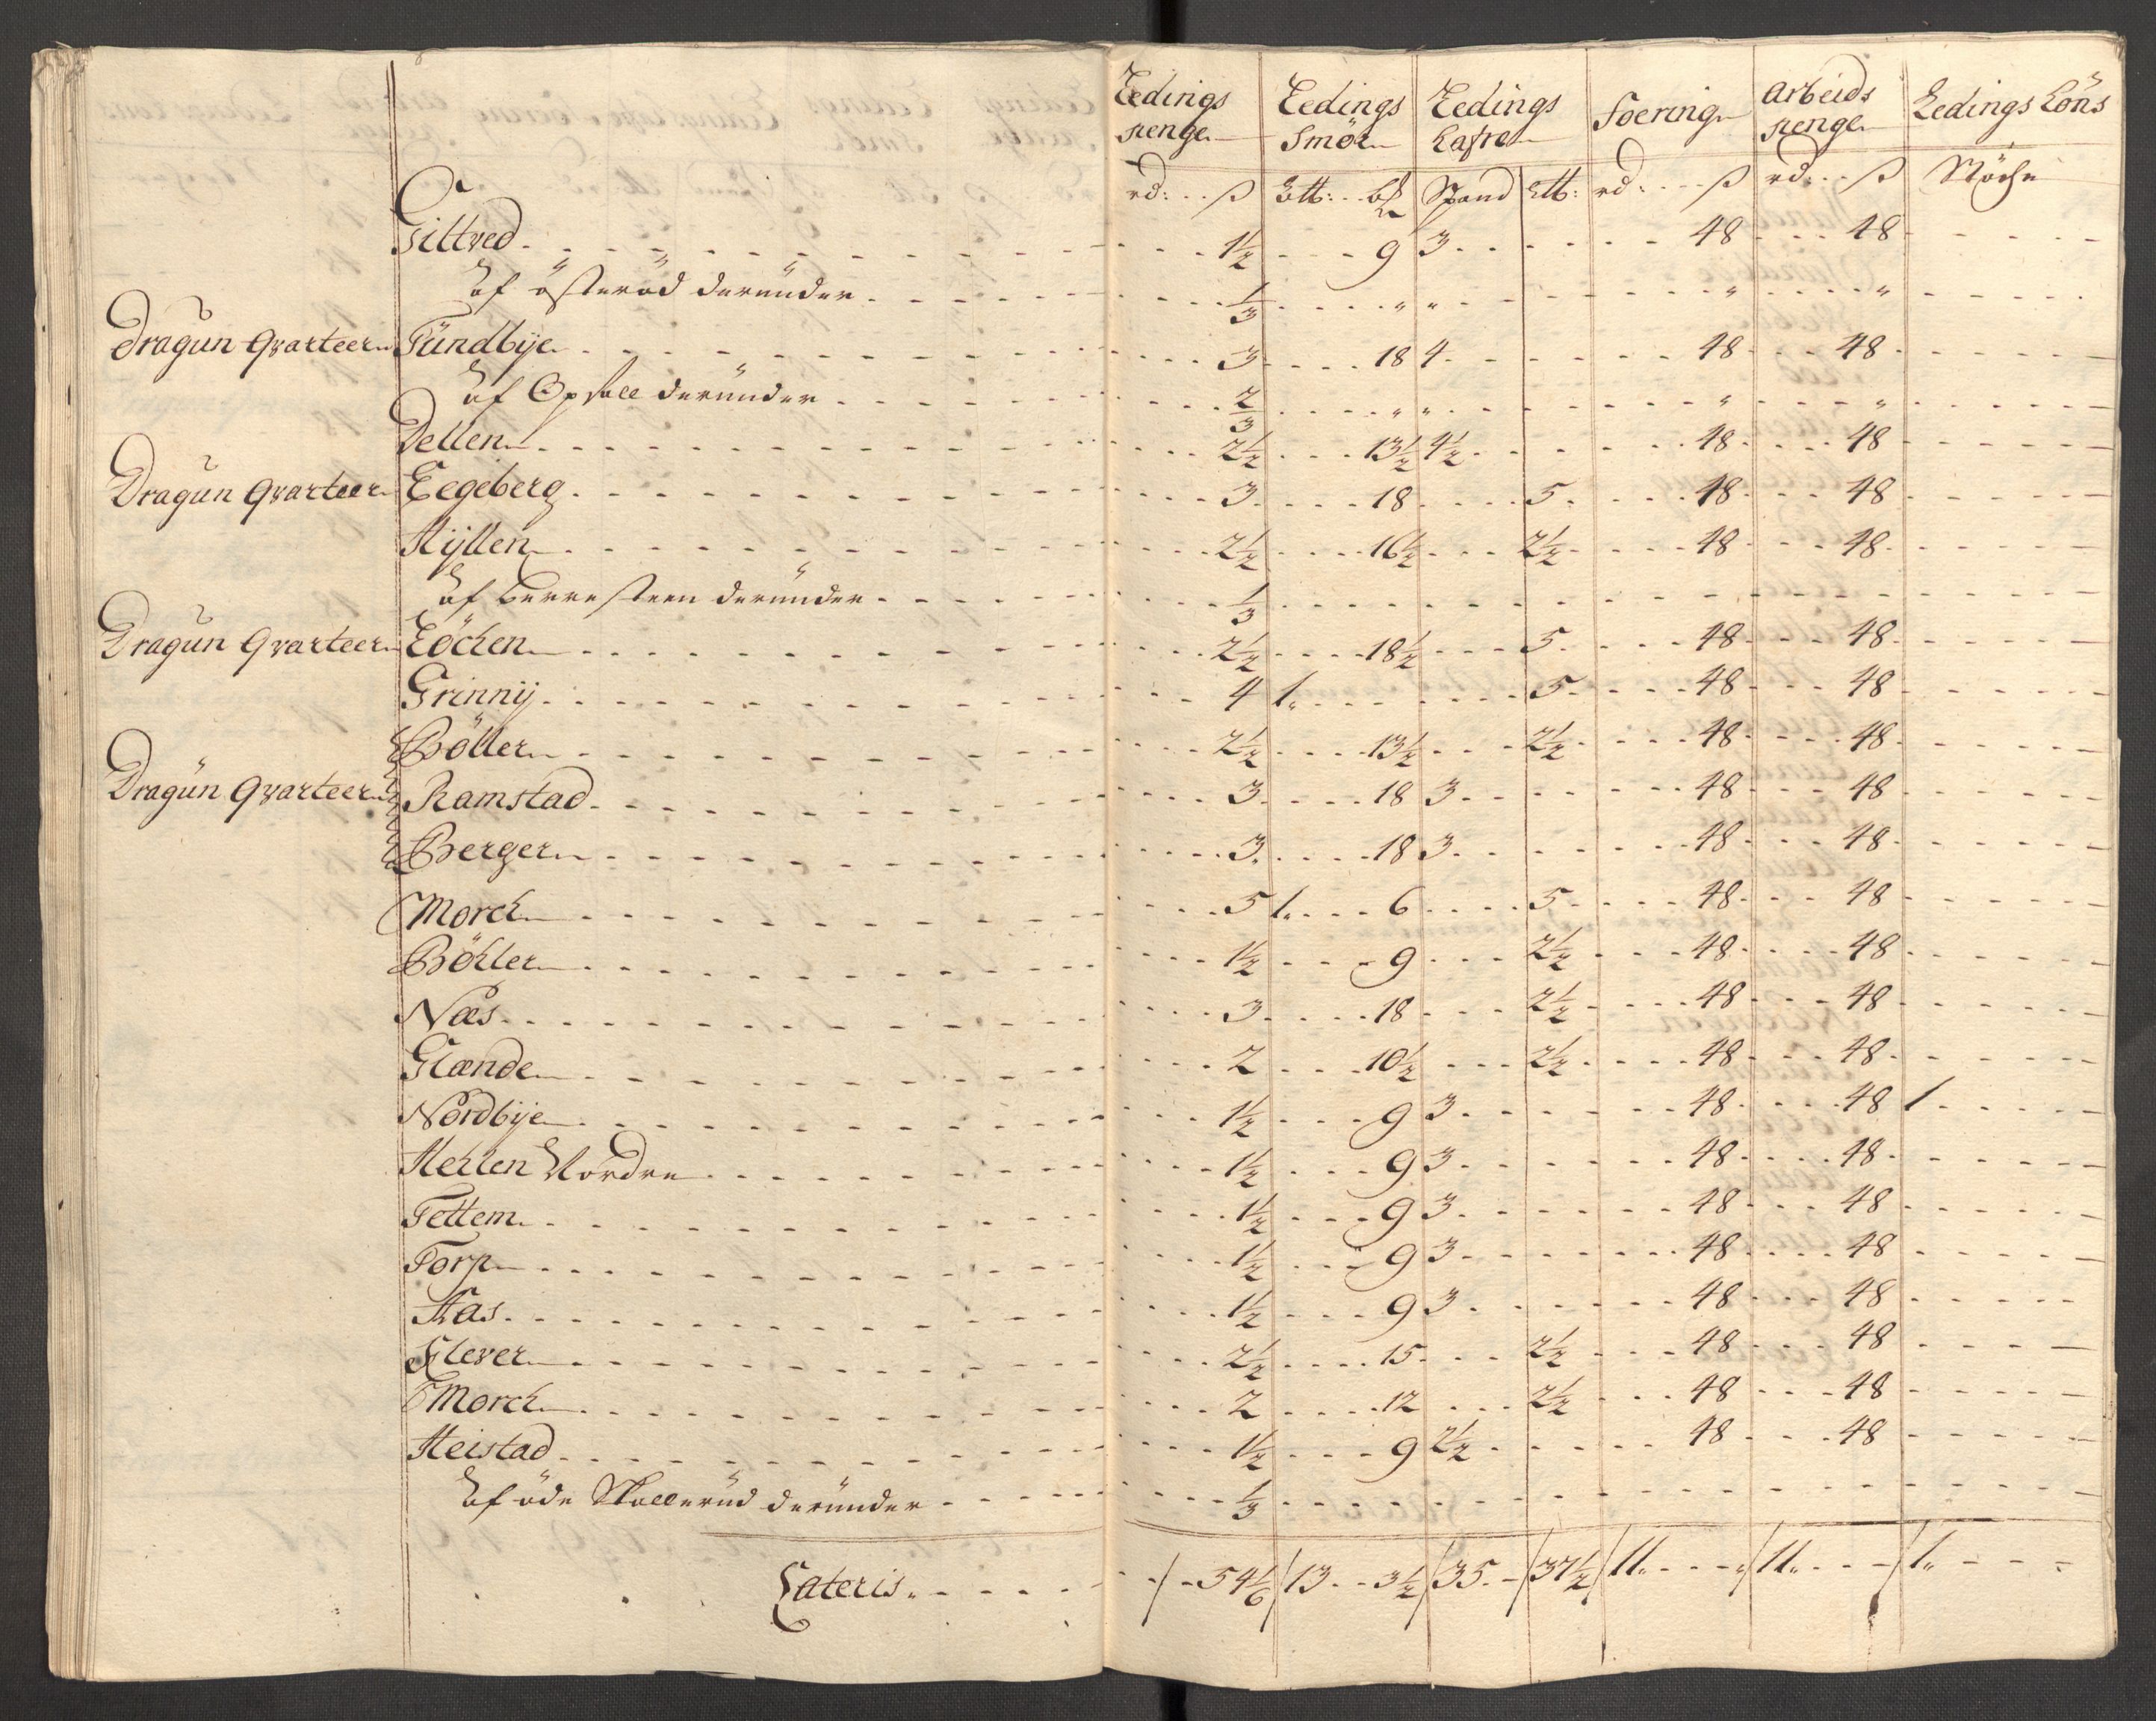 Ledings penge Ledings Smör Ledings Hafre Foering Arbeids penge Ledings Höns
rd: ß bttr: bd Spand Lttr: rd: ß rd: ß Nöhr
Gittved 1½ 9 3 48 48
af österöd derunder ⅓ " " " "
Dragun Qvarteer Sündbÿe 3 18 4 48 48
af Opsall derunder ⅔ " " " "
Dellen 2½ 13½ 4½ 48 48
Dragun Qvarteer Eegeberg 3 18 5 48 48
Hÿllen 2½ 16½ 2½ 48 48
af berresteen derunder ⅓
Dragun Qvarteer Löchen 2½ 18½ 5 48 48
Grinnÿ 4 1 5 48 48
Böller 2½ 13½ 2½ 48 48
Dragun Qvarteer Ramstad 3 18 3 48 48
Berger 3 18 3 48 48
Morch 5 1 6 5 48 48
Böhler 1½ 9 2½ 48 48
Næs 3 18 2½ 48 48
Glænde 2 10½ 2½ 48 48
Nordbÿe 1½ 9 3 48 48 1
Hellen Nordre 1½ 9 3 48 48
Tettem 1½ 9 3 48 48
Torp 1½ 9 3 48 48
Aas 1½ 9 3 48 48
Klever 2½ 15 2½ 48 48
Morch 2 12 2½ 48 48
Heistad 1½ 9 2½ 48 48
af öde Skallerud derunder ⅓
Lateris 54⅙ 13 3½ 35 37½ 11 11 1